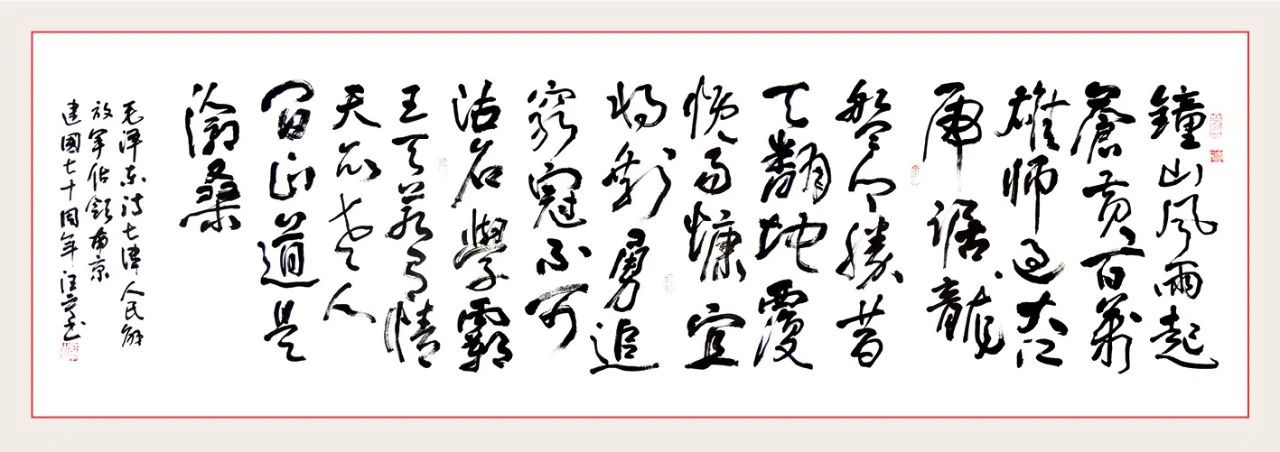 鐘山風雨起
蒼黃百萬
雄師過大江
虎踞龍
盤今勝昔
天翻地覆
慨而慷宜
將剩勇追
窮寇不可
沽名學霸
王天若有情
天亦老人
間正道是
滄桑
毛澤東詩七律人民解
放軍佔領南京
建國七十周年汪書